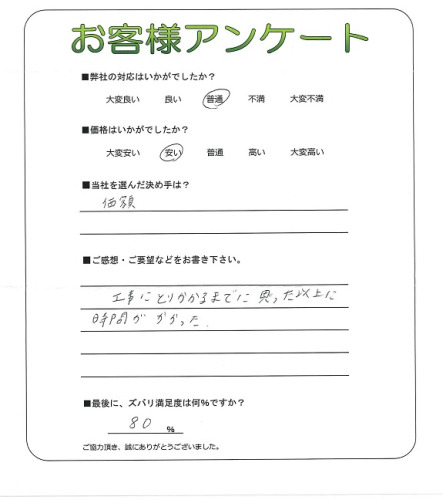 お客様アンケート
■弊社の対応はいかがでしたか？
大変良い 良い 普通 不満 大変不満
■価格はいかがでしたか？
大変安い 安い 普通 高い 大変高い
■当社を選んだ決め手は？
価額
■ご感想・ご要望などをお書き下さい。
工事にとりかかるまでに思った以上に
時間がかかった.
■最後に、ズバリ満足度は何％ですか？
80 %
ご協力頂き、誠にありがとうございました。